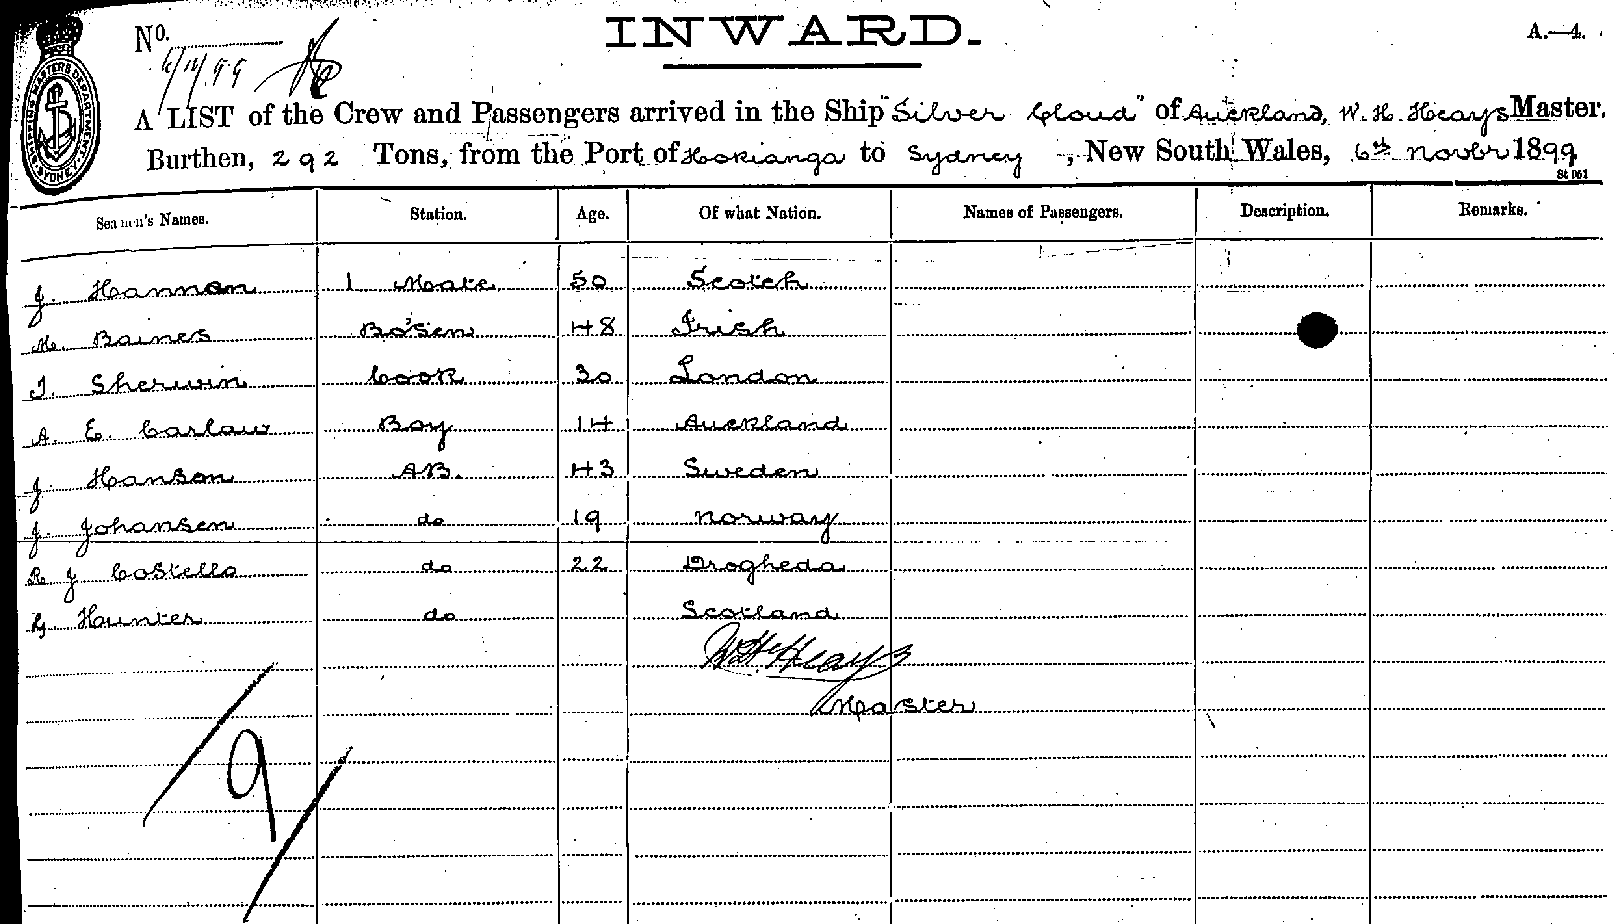 INWARD.
A.—4.
No.
6/11/99
A LIST of the Crew and Passengers arrived in the Ship "Silver Cloud" of Auckland, W. H. Heays Master,
Burthen, 292 Tons, from the Port of Hokianga to Sydney, New South Wales, 6th Novbr 1899
SHIPPING MASTERS DEPARTMENT SYDNEY
Seamen's Names. Station. Age. Of what Nation. Names of Passengers. Description. Remarks.
J. Hannan 1 Mate 50 Scotch
M. Baines Bo'sen 48 Irish
T. Sherwin Cook 30 London
A. E. Carlaw Boy 14 Auckland
J. Hanson AB. 43 Sweden
J. Johansen do 19 Norway
R J Costello do 22 Drogheda
G Hunter do Scotland
W H Heays
Master
9